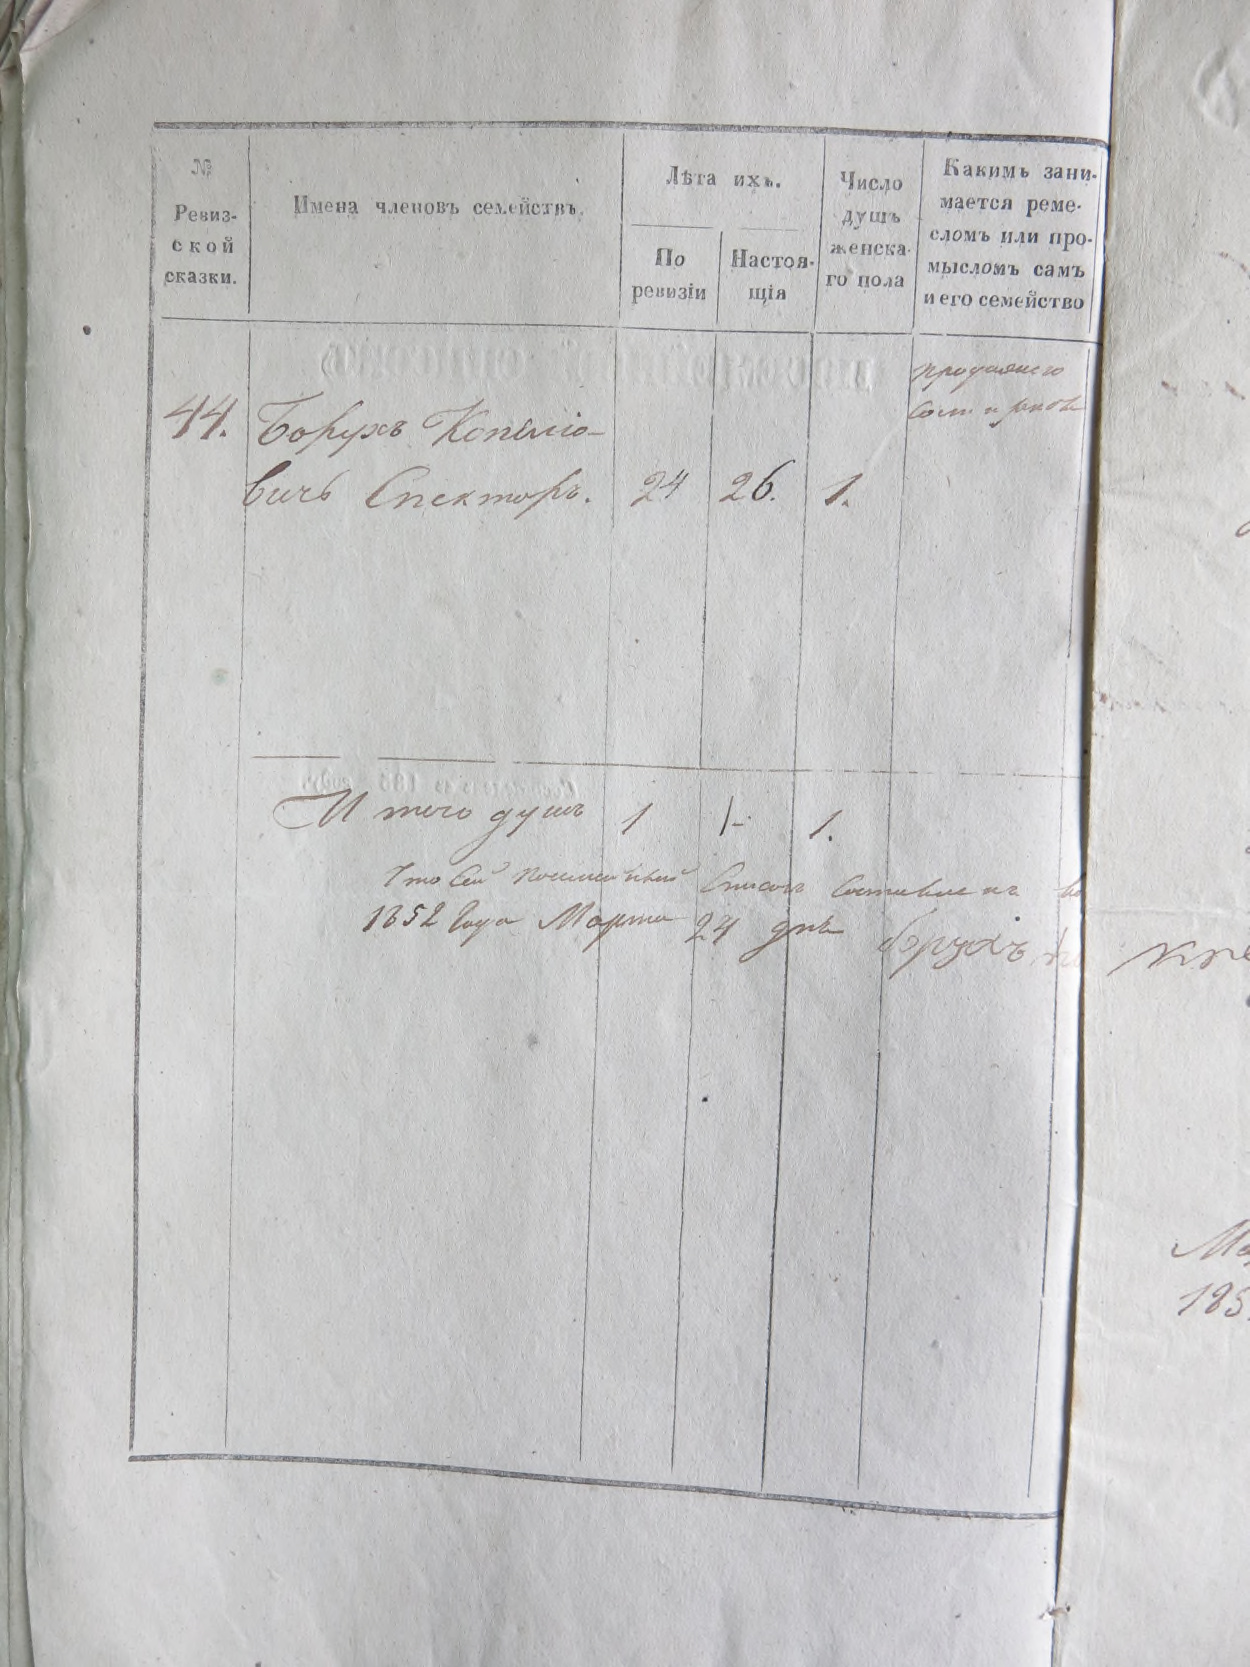 №
Ревиз-
ской
сказки.
Имена членовъ семействъ.
Лѣта ихъ.
По
ревизіи
Настоя-
щія
Число
душъ
женска-
го пола
Какимъ зани-
мается реме-
сломъ или про-
мысломъ самъ
и его семейство
44. Борухъ Копеліо-
вичъ Спекторъ. 24 26. 1.
Итого душъ 1 1.
Что сей посемейный Списокъ Составленъ
1852 Года Марта 24 дня Борухъ
185